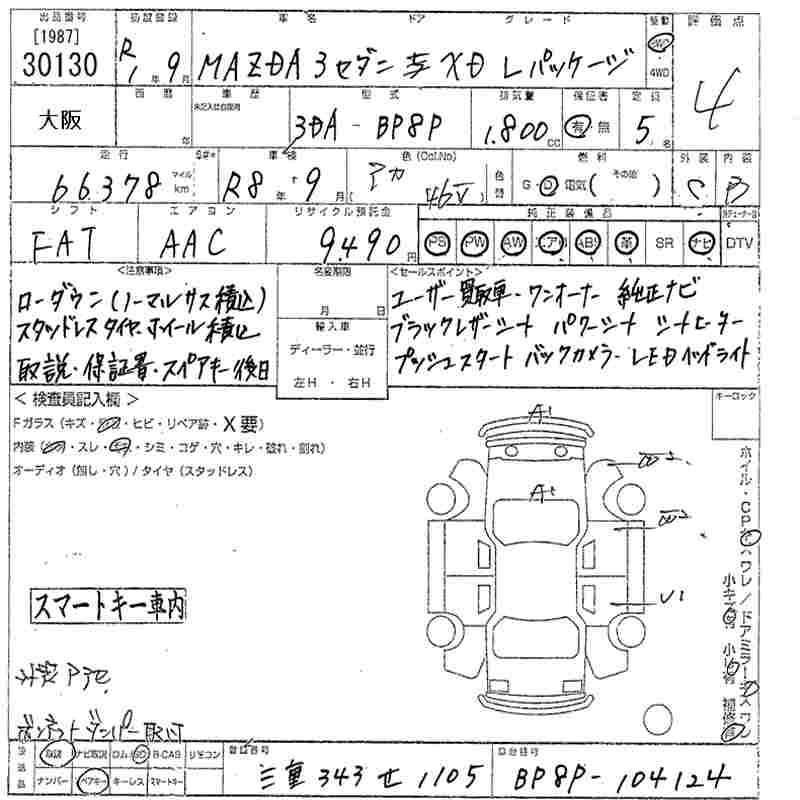 出品番号 初度登録 車名 ドア グレード 駆動 評価点
[1987]
30130 R1年9月 MAZDA3セダン XD Lパッケージ 2WD 4WD 4
大阪 西暦 年 車歴 未記入は自家用 型式 排気量 保証書 定員
3DA-BP8P 1.800cc 有・無 5名
走行 車検 色(Col.No) 色替 燃料 外装 内装
66.378 マイル km R8年9月 アカ (46V) G・D・電気( その他 ) C B
シフト エアコン リサイクル預託金 純正装備品
FAT AAC 9490円 PS PW AW エアB ABS 革 SR ナビ DTV
<注意事項> 名変期限 <セールスポイント>
ローダウン(ノーマルサス積込) 月 日 ユーザー買取車・ワンオーナー 純正ナビ
スタッドレスタイヤホイール積込 輸入車 ブラックレザーシート パワーシート シートヒーター
取説・保証書・スペアキー後日 ディーラー・並行 プッシュスタート バックカメラ・LEDヘッドライト
左H・右H
<検査員記入欄> キーロック
Fガラス(キズ・・ヒビ・リペア跡・X要)
内装(・スレ・・シミ・コゲ・穴・キレ・破れ・割れ)
オーディオ(無し・穴)/タイヤ(スタッドレス)
A1
A1
W2
W2
U1
スマートキー車内
ボンネットダンパー取付
後送品 取説 ナビ取説 ロム・SD B-CAS リモコン 登録番号 車台番号
ナンバー スペアキー キーレス スマートキー 三重 343 せ 1105 BP8P-104124